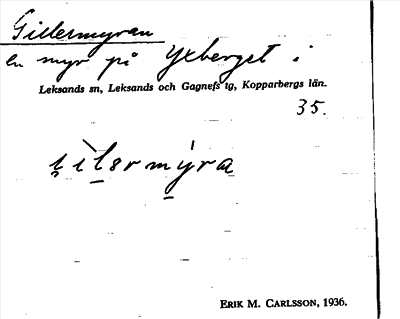 Gillermyran
en myr på Yxberget i
Leksands sn, Leksands och Gagnefs tg, Kopparbergs län.
35.
ERIK M. CARLSSON, 1936.